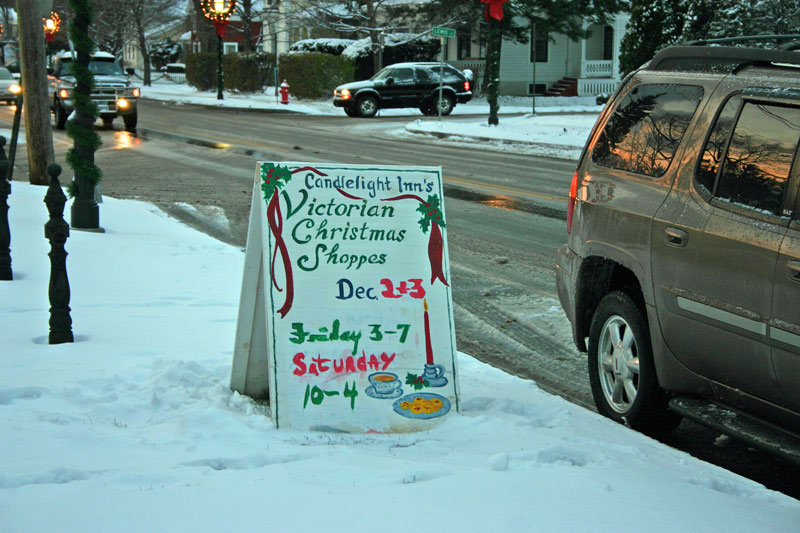 Candlelight Inn's
Victorian
Christmas
Shoppes
Dec. 2+3
Friday 3-7
Saturday
10-4